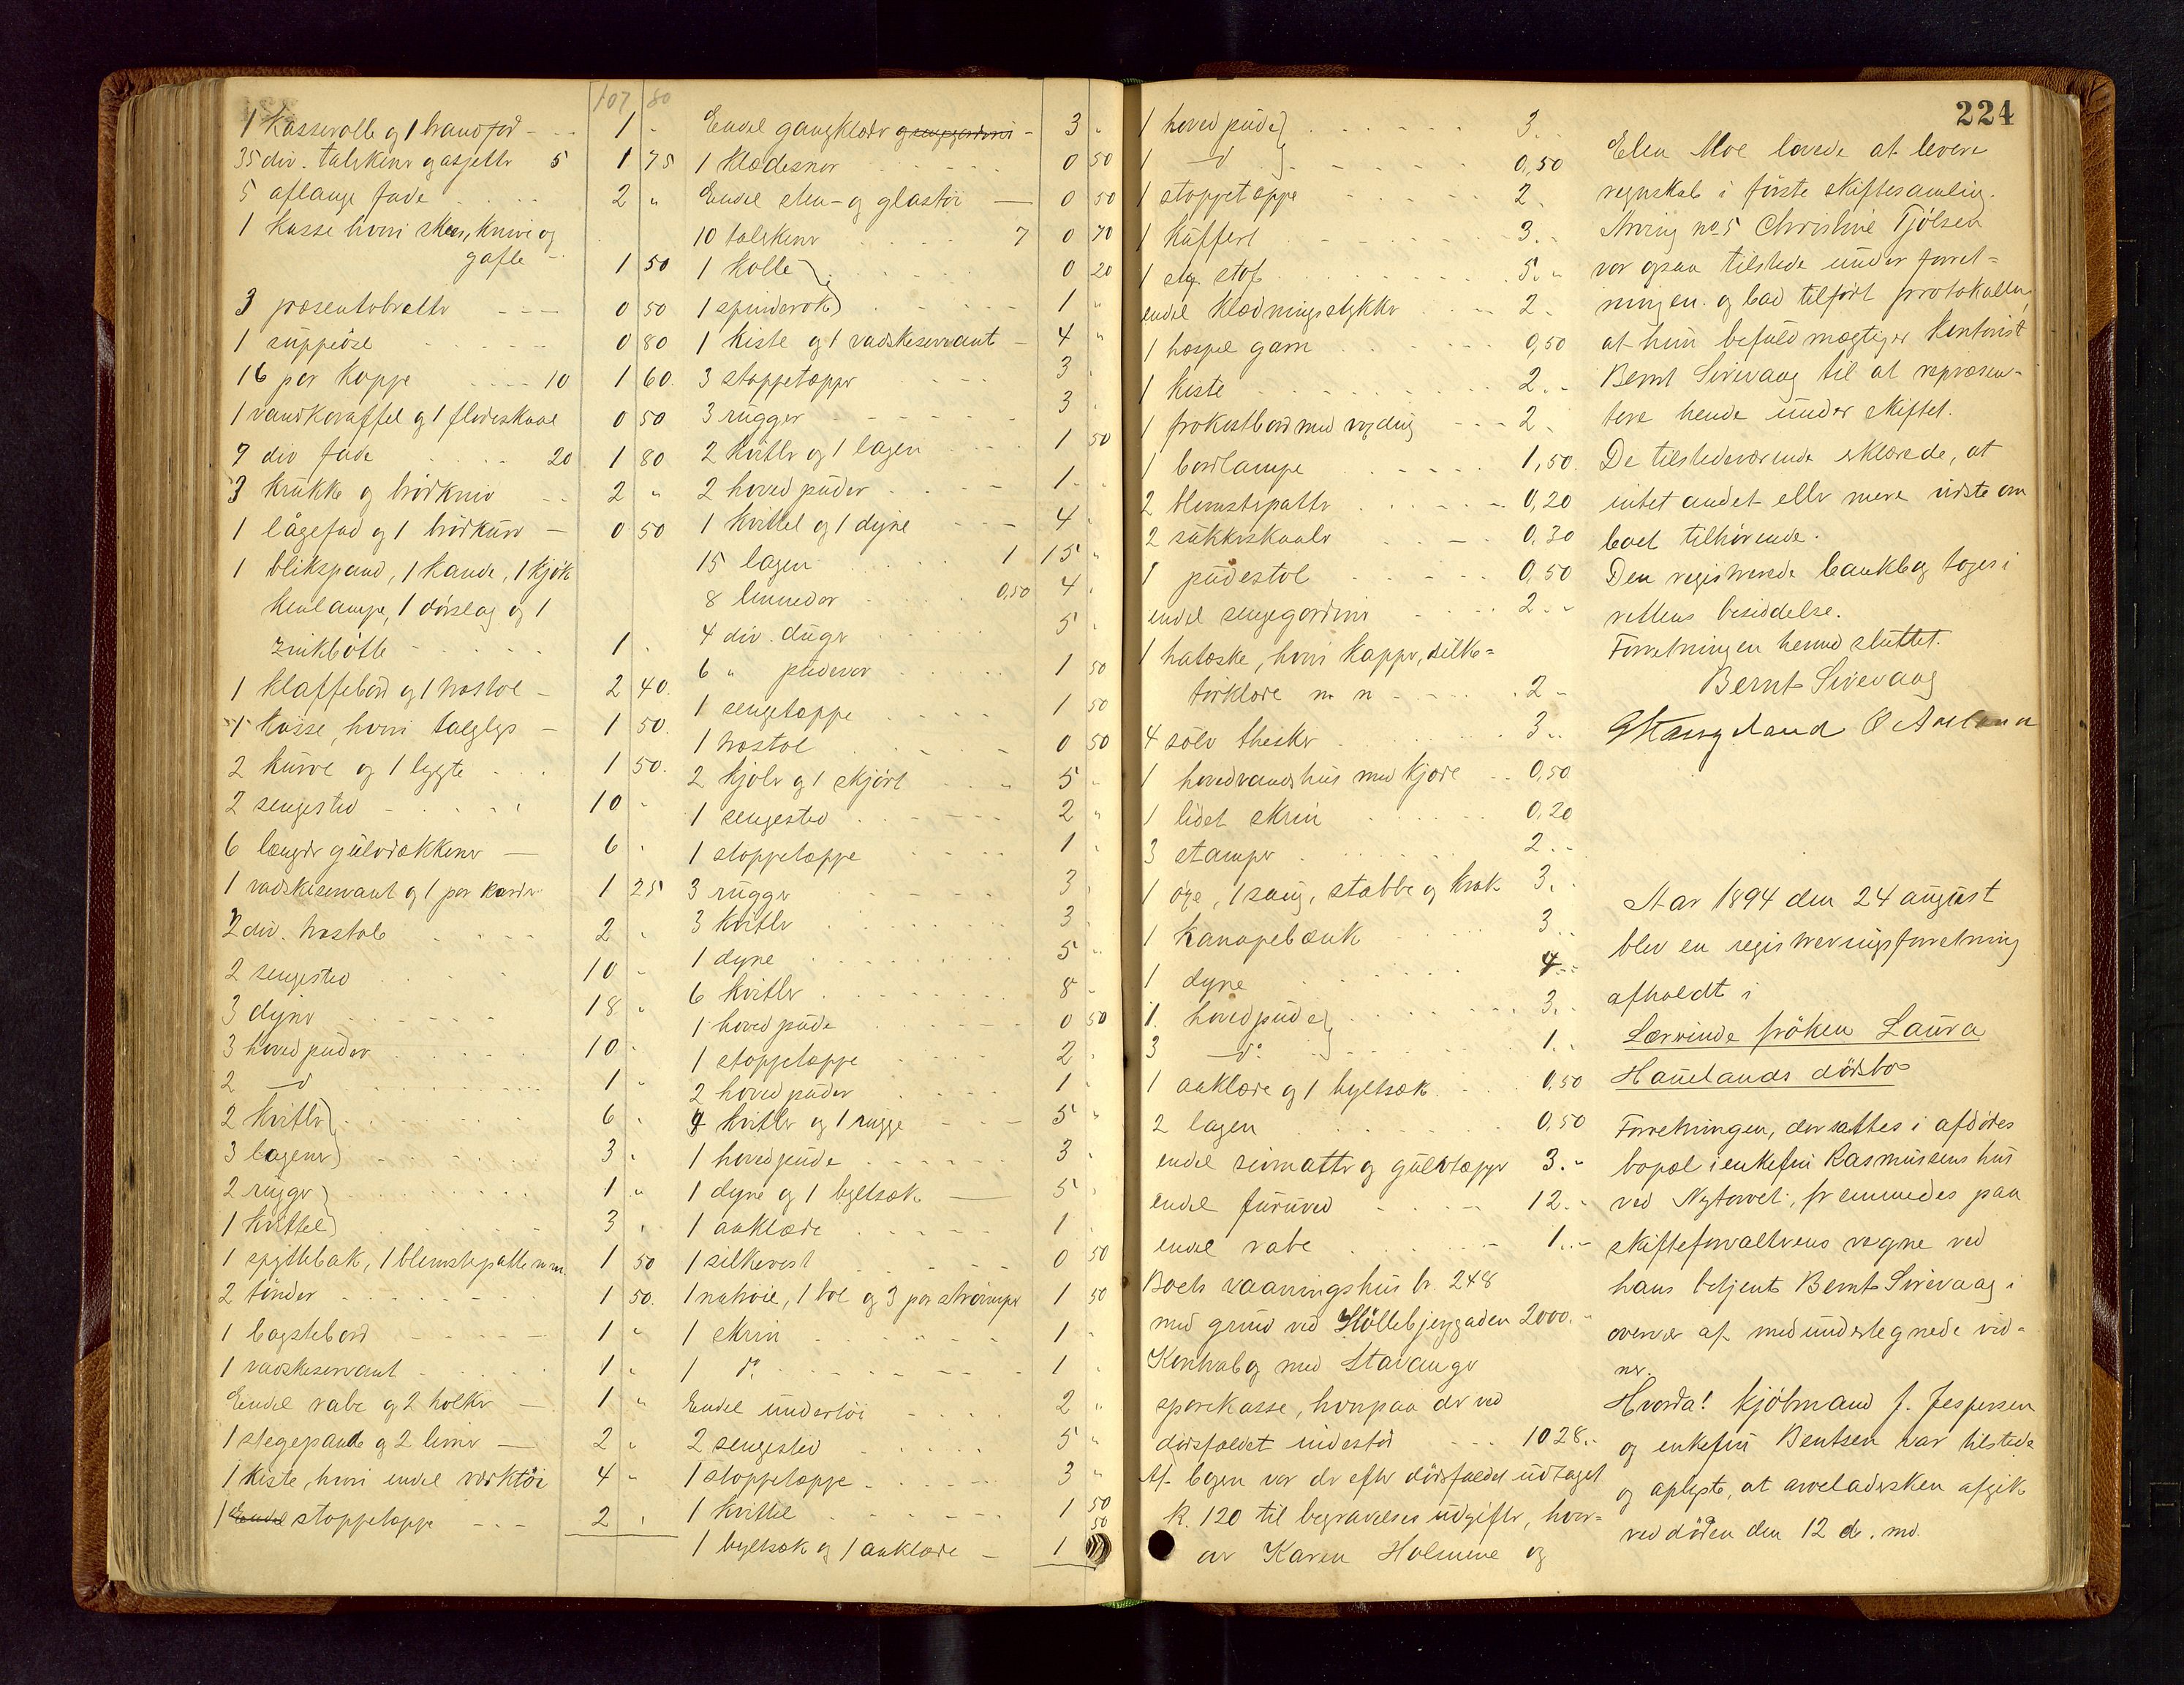 107 80
1 Kasserolle og 1 brandfad - - - 1 "
35 div. talerkener og asjetter 5 1 75
5 aflange fade 2 "
1 Kasse hvori skeer, knive og
gafle - 1 50
3 præsenterbretter - - - 0 50
1 suppeøse 0 80
16 par Kopper 10 1 60
1 vandkaraffel og 1 flødeskaal 0 50
9 div fade 20 1 80
3 Krukker og brødkniv 2 "
1 lågefad og 1 brødkurv - 0 50
1 blikspand, 1 Kande, 1 kjøk
kenlampe, 1 dørslag og 1
zinkbøtte 1 "
1 Klaffebord og 1 træstol - 2 40
1 Kasse, hvori talglys - 1 50
2 Kurve og 1 lygte 1 50
2 sengested 10 "
6 længder gulvdækkener - 6 "
1 vadskeservant og 1 par Karder 1 25
2 div. træstole 2 "
2 sengested 10 "
3 dyner 18 "
3 hovedpuder 10 "
2 do 1 "
2 Kvitler 6 "
3 lagener 3 "
2 rugger 1 "
1 Kvittel 3 "
1 spyttebak, 1 blomsterpotte m m. 1 50
2 tønder 1 50
1 bagstebord 1 "
1 vadskeservant 1 "
Endel rabe og 2 holker - 1 "
1 stegepande og 2 limer - 2 "
1 Kiste, hvori endel værktøi 4 "
1 Endel stoppetæppe - - - 2 "
Endel gangklæder og sengegardiner - 3 "
1 Klædesnor 0 50
Endel sten- og glastøi - 0 50
10 talerkener 7 0 70
1 Kolle 0 20
1 spinderok 1 "
1 Kiste og 1 vadskeservant - 4 "
3 stoppetæpper 3 "
3 rugger 3 "
2 Kvitler og 1 lagen 1 50
2 hovedpuder 1 "
1 Kvittel og 1 dyne 4 "
15 lagen 1 15 "
8 linneder 0,50 4 "
4 div. duger 5 "
6 " pudevar 1 50
1 sengetæppe 1 50
1 træstol 0 50
2 Kjoler og 1 skjørt 5 "
1 sengested 2 "
1 stoppetæppe 1 "
3 rugger 3 "
3 Kvitler 3 "
1 dyne 5 "
6 Kvitler 8 "
1 hovedpude 0 50
1 stoppetæppe 2 "
2 hovedpuder 1 "
4 Kvitler og 1 rugge 5 "
1 hovedpude 3 "
1 dyne og 1 byltsæk - 5 "
1 aaklæde 1 "
1 silkevest 0 50
1 nattrøie, 1 bol og 3 par strømper 1 50
1 skrin 1 "
1 do 1 "
Endel undertøi 2 "
2 sengested 5 "
1 stoppetæppe 3 "
1 Kvittel 1 50
1 byltsæk og 1 aaklæde - 1 50
224
1 hovedpude 3. "
1 do 0,50
1 stoppetæppe 2. "
1 Kuffert 3. "
1 stk. stof 5. "
endel Klædningsstykker 2. "
1 hespel garn 0,50
1 Kiste 2. "
1 frokostbord med vogdug 2. "
1 bordlampe 1,50
2 blomsterpotter 0,20
2 sukkerskaaler 0,30
1 pudestol 0,50
endel sengegardiner 2. "
1 hatæske, hvori Kapper, silke=
tørklæde m m 2. -
4 sølv theskeer 3. "
1 hovedvandshus med Kjæde 0,50
1 lidet skrin 0,20
3 stamper 2. "
1 øxe, 1 saug, stabbe og krak 3. "
1 Kanapebænk 3. "
1 dyne 4. "
1 hovedpude 3. "
3 do 1. "
1 aaklæde og 1 byltsæk 0,50
2 lagen 0,50
endel sivmatter og gulvtæpper 3. "
endel furuved 12. "
endel rabe 1. "
Boets vaaningshus br. 248
med grund ved Støllebjerggaden 2000. "
Kontrabog med Stavanger
sparekasse, hvorpaa der ved
dødsfaldet indestod 1028. "
Af bogen var der efter dødsfaldet udtaget
k. 120 til begravelses udgifter, hvor=
over Karen Holmene og
Elen Moe lovede at levere
regnskab i første skiftesamling.
Arving no 5 Christine Tjølsen
var ogsaa tilstede under forret=
ningen og bad tilført protokollen,
at hun befuldmægtiger Kontorist
Bernt Sirevaag til at repræsen-
tere hende under skiftet.
De tilstedeværende erklærede, at
intet andet eller mere vidste om
boet tilhørende.
Den registrerede bankbog toges i
rettens besiddelse.
Forretningen hermed sluttet.
Bernt Sirevaag
Aar 1894 den 24 august
blev en registreringsforretning
afholdt i
Lærerinde frøken Laura
Hauelands dødsbo
Forretningen, der sattes i afdødes
bopæl i enkefru Rasmussens hus
ved Nytorvet, fremmedes paa
skifteforvalterens vegne ved
hans betjent Bernt Sirevaag i
overvær af medundertegnede vid=
ner.
Hvorda! Kjøbmand J. Jespersen
og enkefru Bentsen var tilstede
og oplyste, at arveladersken afgik
ved døden den 12 d. md.